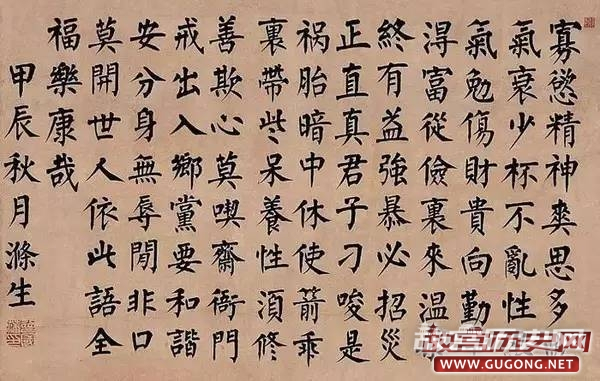 寡慾精神爽思多
氣衰少杯不亂性
氣勉傷財貴向勤
淂富從儉裏來溫
終有益強暴必招災
正直真君子刁唆是
祸胎暗中休使箭乖
裏帶些呆養性須修
善欺心莫喫齋衙門
戒出入鄉黨要和諧
安分身無辱閒非口
莫開世人依此語全
福樂康哉
甲辰秋月滌生
故宫历史网
www.GUGONG.NET